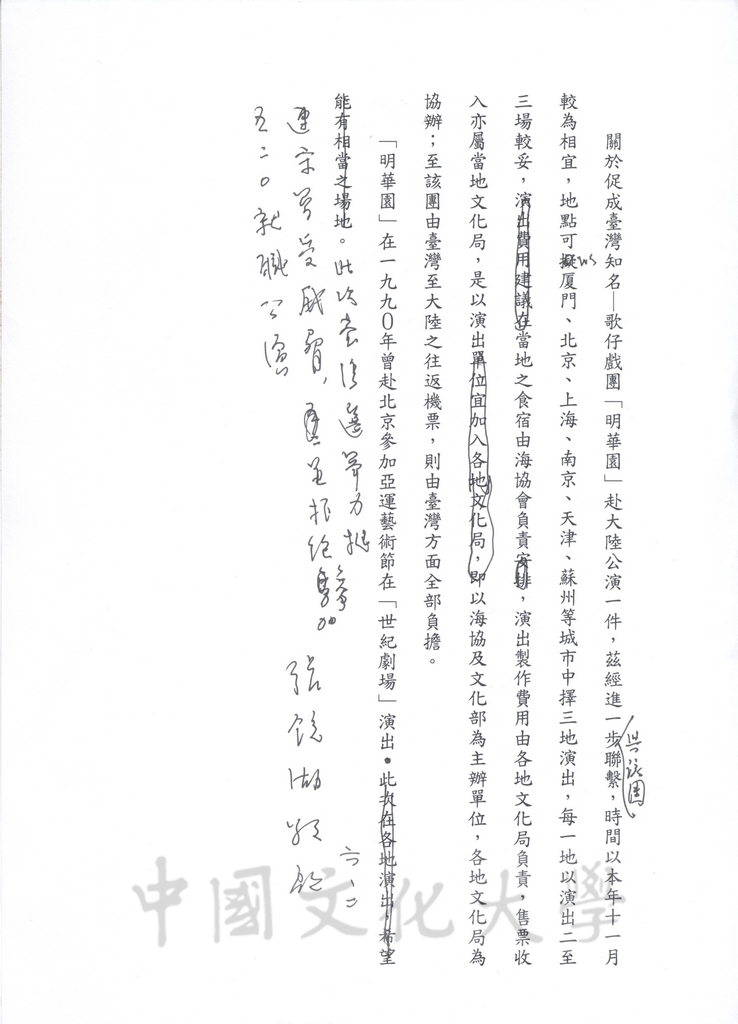 關於促成臺灣知名—歌仔戲團「明華園」赴大陸公演一件，茲經進一步聯繫，時間以本年十一月
與該團
較為相宜，地點可擬以厦門、北京、上海、南京、天津、蘇州等城市中擇三地演出，每一地以演出二至
三場較妥，演出費用建議在當地之食宿由海協會負責安排，演出製作費用由各地文化局負責，售票收
入亦屬當地文化局，是以演出單位宜加入各地文化局，即以海協及文化部為主辦單位，各地文化局為
協辦；至該團由臺灣至大陸之往返機票，則由臺灣方面全部負擔。
「明華園」在一九九０年曾赴北京參加亞運藝術節在「世紀劇場」演出。此次在各地演出，希望
能有相當之場地。此次當
五二０就職
張鏡湖
六、二
中國文化大學